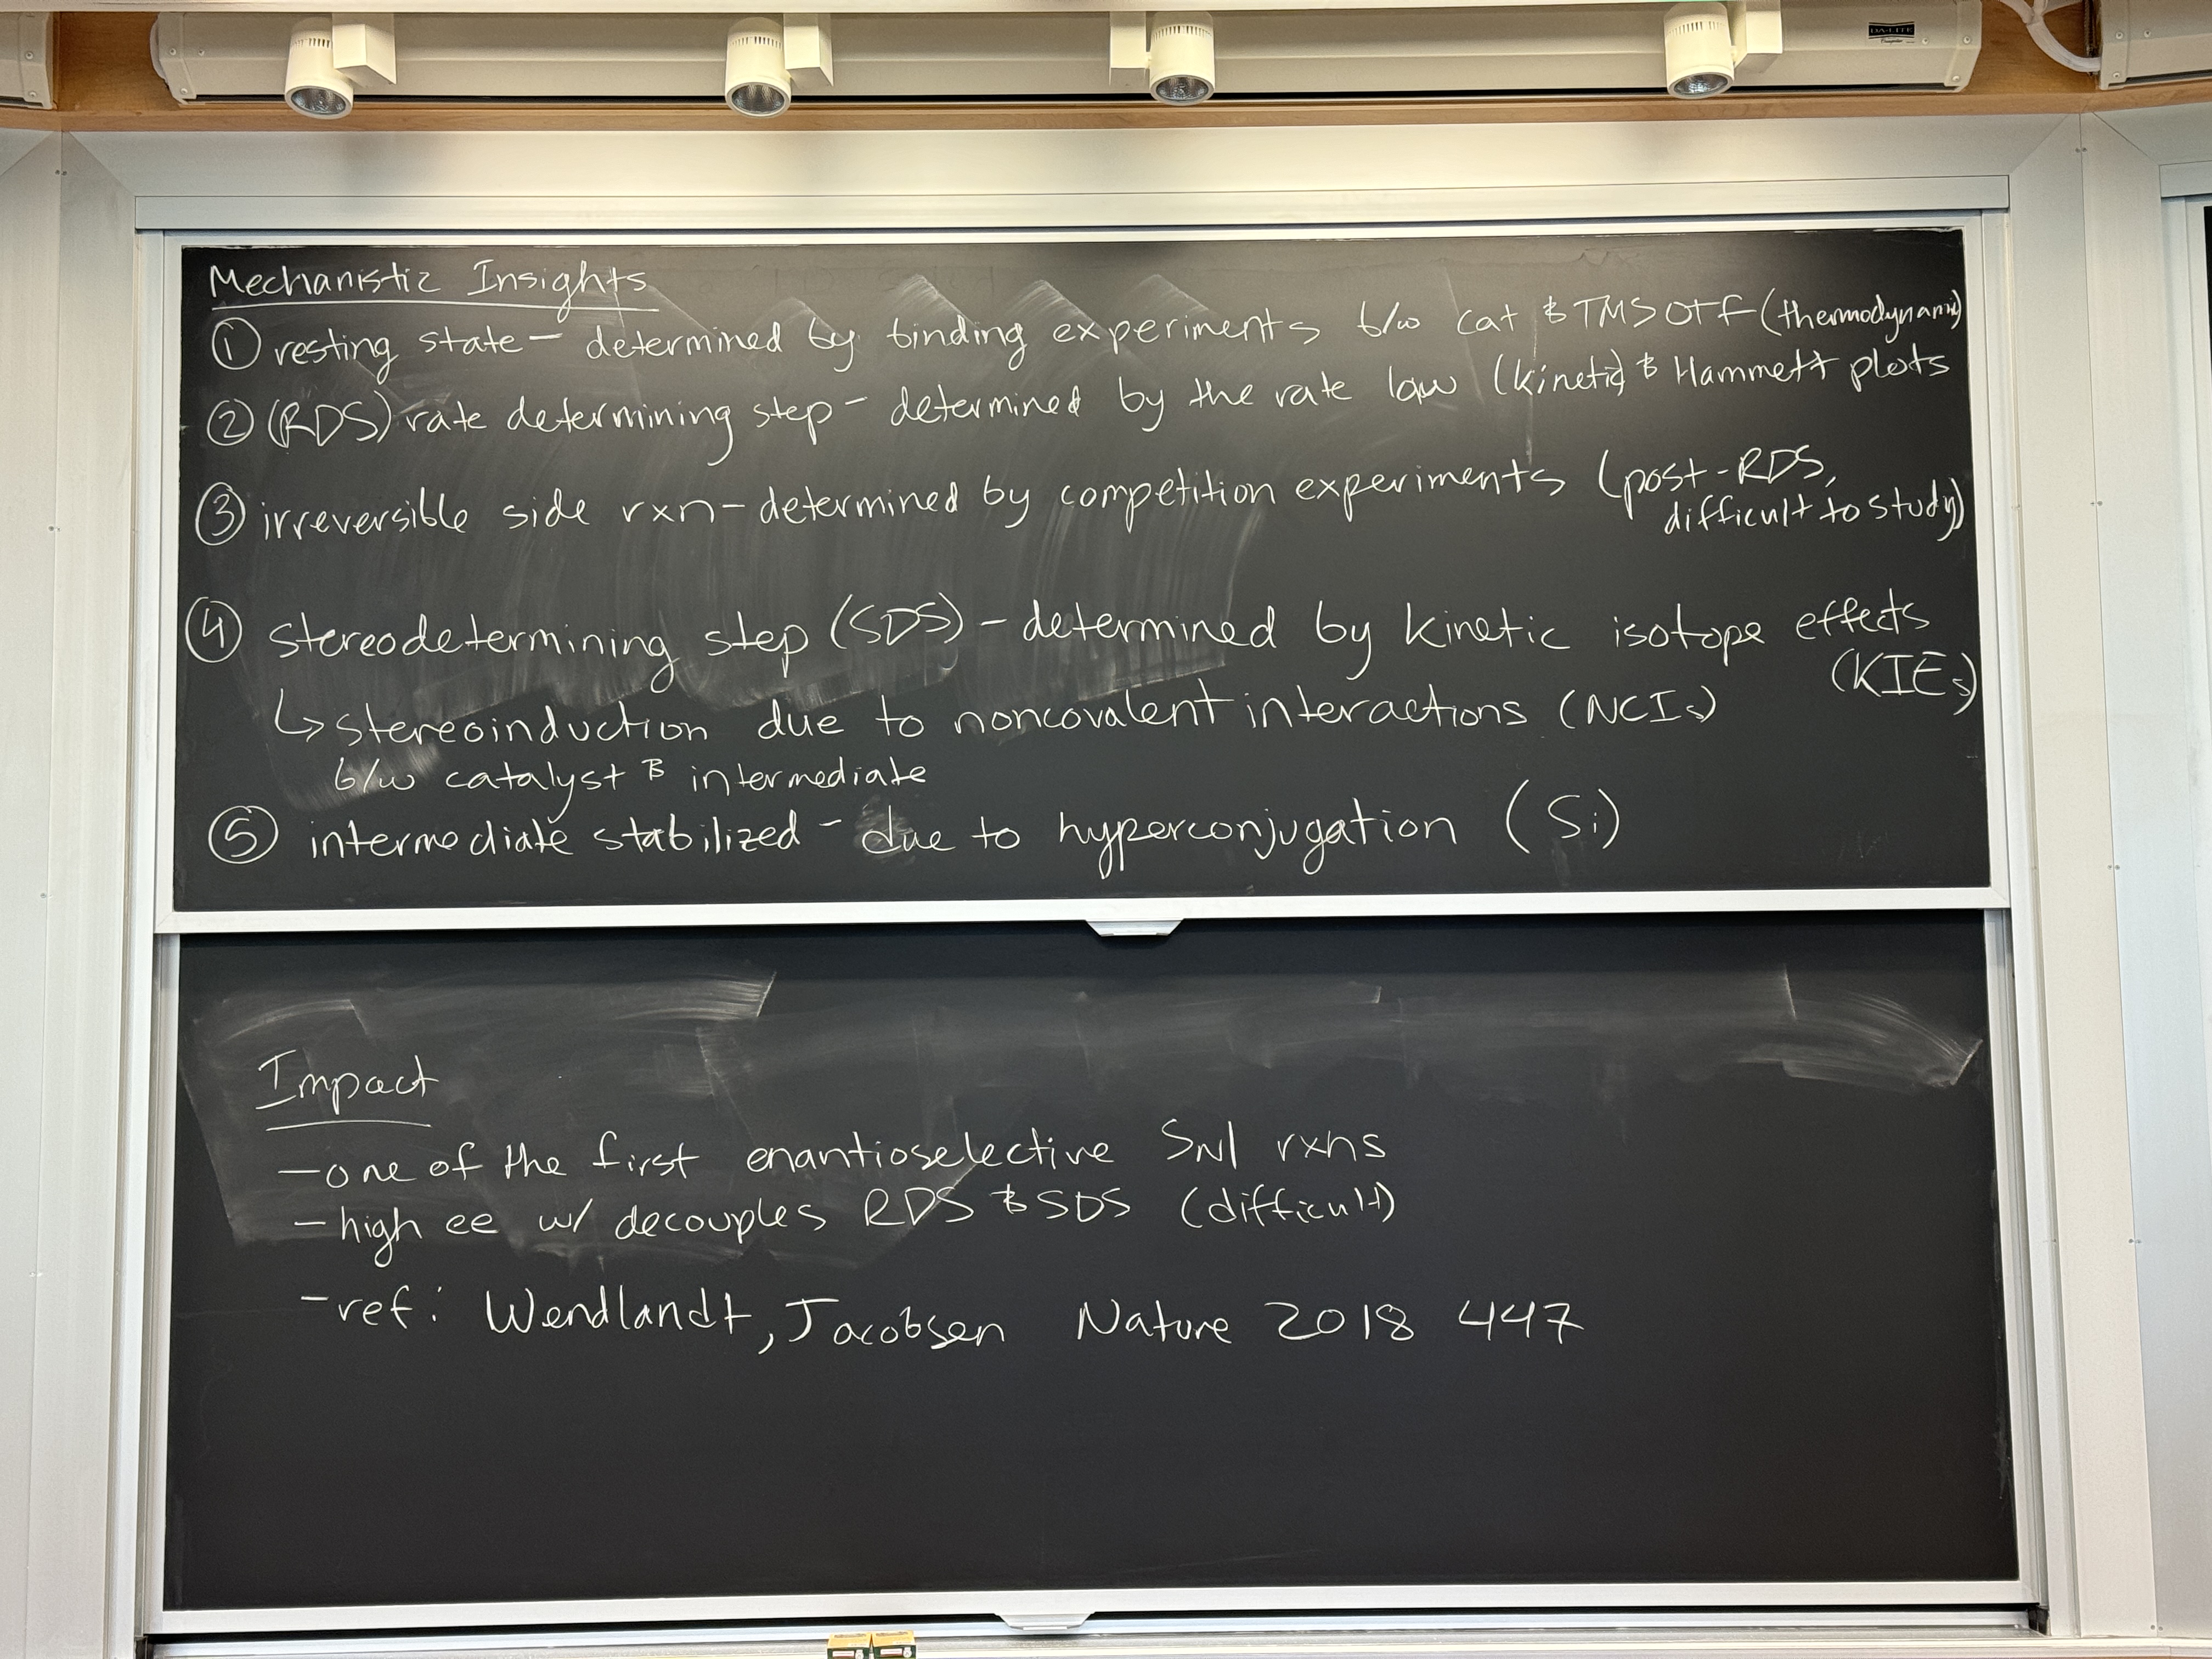 DA-LITE
Mechanistic Insights
① resting state – determined by binding experiments b/w cat & TMSOTf (thermodynamic)
② (RDS) rate determining step – determined by the rate law (kinetic) & Hammett plots
③ irreversible side rxn – determined by competition experiments (post-RDS,
difficult to study)
④ stereodetermining step (SDS) – determined by kinetic isotope effects
(KIEs)
↳ stereoinduction due to noncovalent interactions (NCIs)
b/w catalyst & intermediate
⑤ intermediate stabilized – due to hyperconjugation (Si)
Impact
– one of the first enantioselective SN1 rxns
– high ee w/ decouples RDS & SDS (difficult)
– ref: Wendlandt, Jacobsen Nature 2018 447